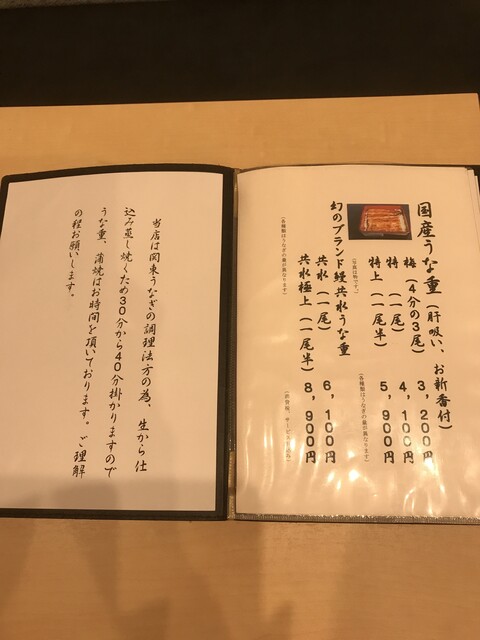 国産うな重(肝吸い、お新香付)
梅(4分の3尾) 3,200円
特(一尾) 4,100円
特上(一尾半) 5,900円
(写真は特です。)
(各種類はうなぎの量が異なります)
幻のブランド鰻共水うな重
共水(一尾) 6,100円
共水極上(一尾半) 8,900円
(各種類はうなぎの量が異なります)
当店は関東うなぎの調理法方の為、生から仕
込み蒸し焼くため30分から40分掛かりますので
うな重、蒲焼はお時間を頂いております。ご理解
の程お願いします。